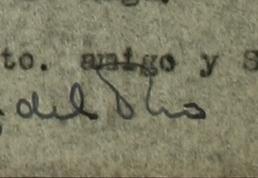 to. amigo y S
del Rio